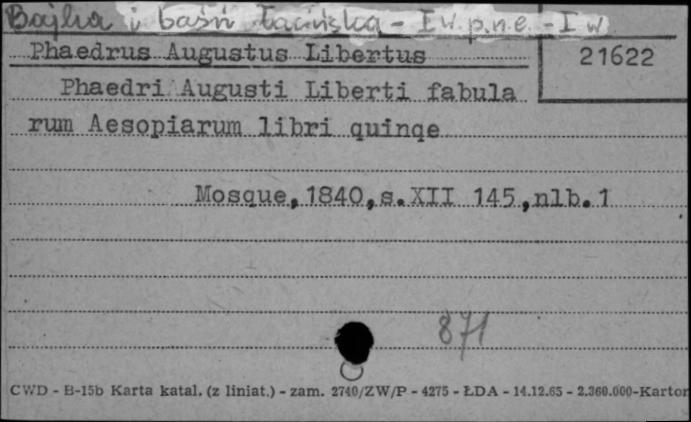 Bajka i baśń łacińska - I w. p.n.e. - I w
Phaedrus Augustus Libertus
21622
Phaedri Augusti Liberti fabula
rum Aesopiarum libri quinqe
Mosque, 1840, s. XII 145, nlb. 1
871
CWD - B-15b Karta katal. (z liniat.) - zam. 2740/ZW/P - 4275 - ŁDA - 14.12.65 - 2.360.000-Karton